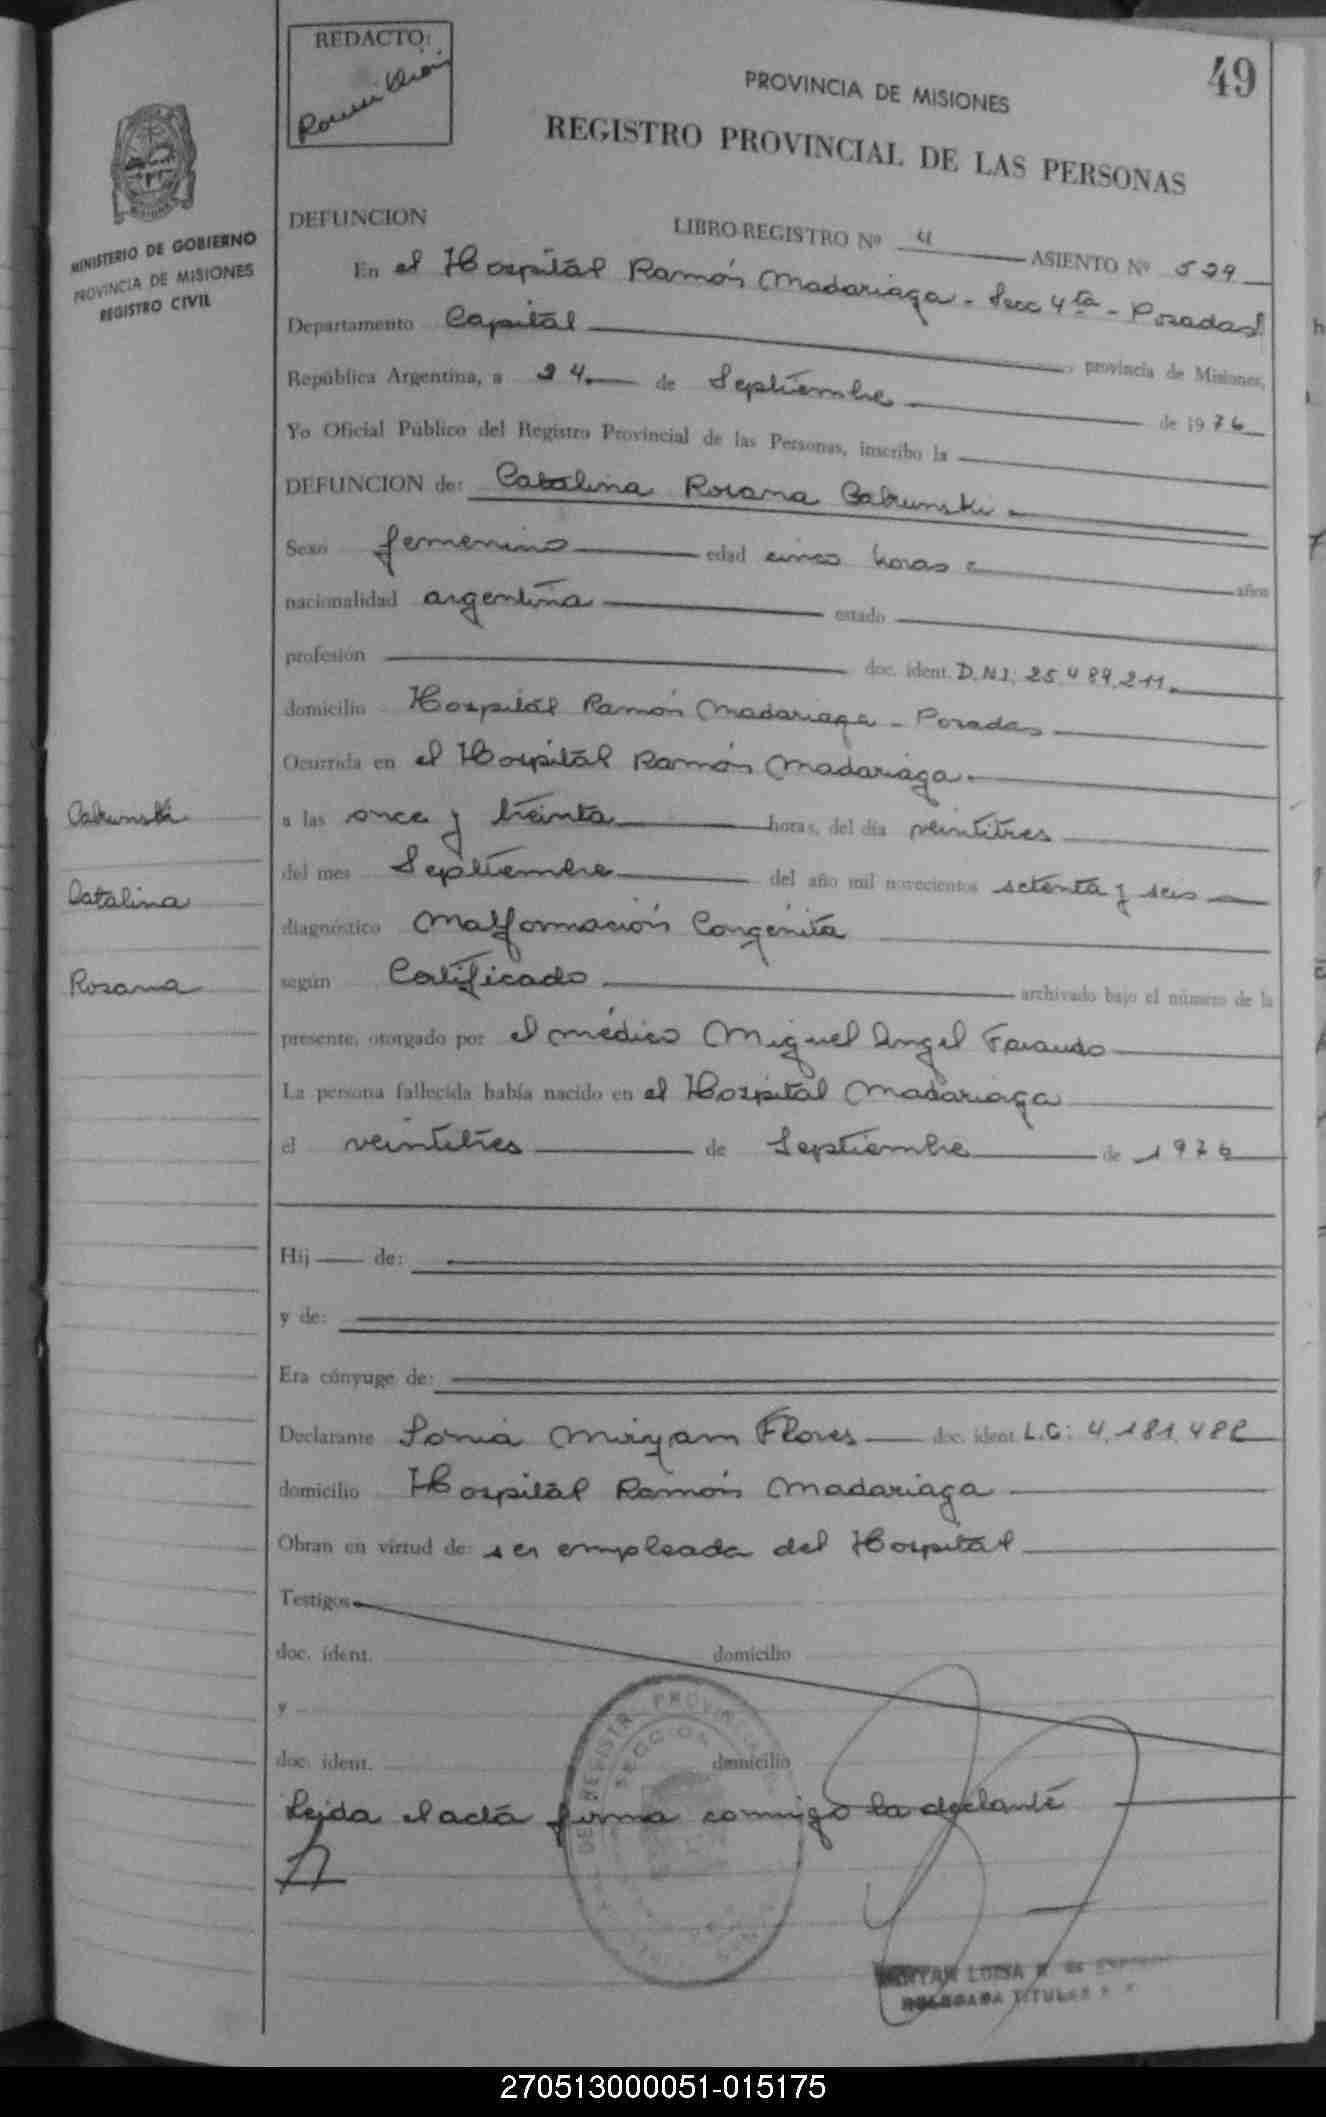 REDACTO:
49
PROVINCIA DE MISIONES
REGISTRO PROVINCIAL DE LAS PERSONAS
MINISTERIO DE GOBIERNO
PROVINCIA DE MISIONES
REGISTRO CIVIL
DEFUNCION LIBRO-REGISTRO Nº 4 ASIENTO Nº 529
En el Hospital Ramón Madariaga - Secc 4ta - Posadas
Departamento Capital, provincia de Misiones,
República Argentina, a 24 de Septiembre de 1976
Yo Oficial Público del Registro Provincial de las Personas, inscribo la
DEFUNCION de: Catalina Rosana
Sexo femenino edad cinco horas años
nacionalidad argentina estado
profesión doc. ident. D.N.I. 25.489.211
domicilio Hospital Ramón Madariaga - Posadas
Ocurrida en el Hospital Ramón Madariaga
a las once y treinta horas, del día veintitres
del mes Septiembre del año mil novecientos setenta y seis
diagnóstico Malformación Congénita
según Certificado archivado bajo el número de la
presente, otorgado por el médico Miguel Angel
La persona fallecida había nacido en el Hospital Madariaga
el veintitres de Septiembre de 1976
Catalina
Rosana
Hij de:
y de:
Era cónyuge de:
Declarante Sonia Miryam Flores doc. ident. L.C: 4.181.482
domicilio Hospital Ramón Madariaga
Obran en virtud de: ser empleada del Hospital
Testigos
doc. ident. domicilio
y
doc. ident. domicilio
Leida el acta firma conmigo la declante
REGISTRO PROVINCIAL
SECCION
LUISA
DELEGADA TITULAR
270513000051-015175